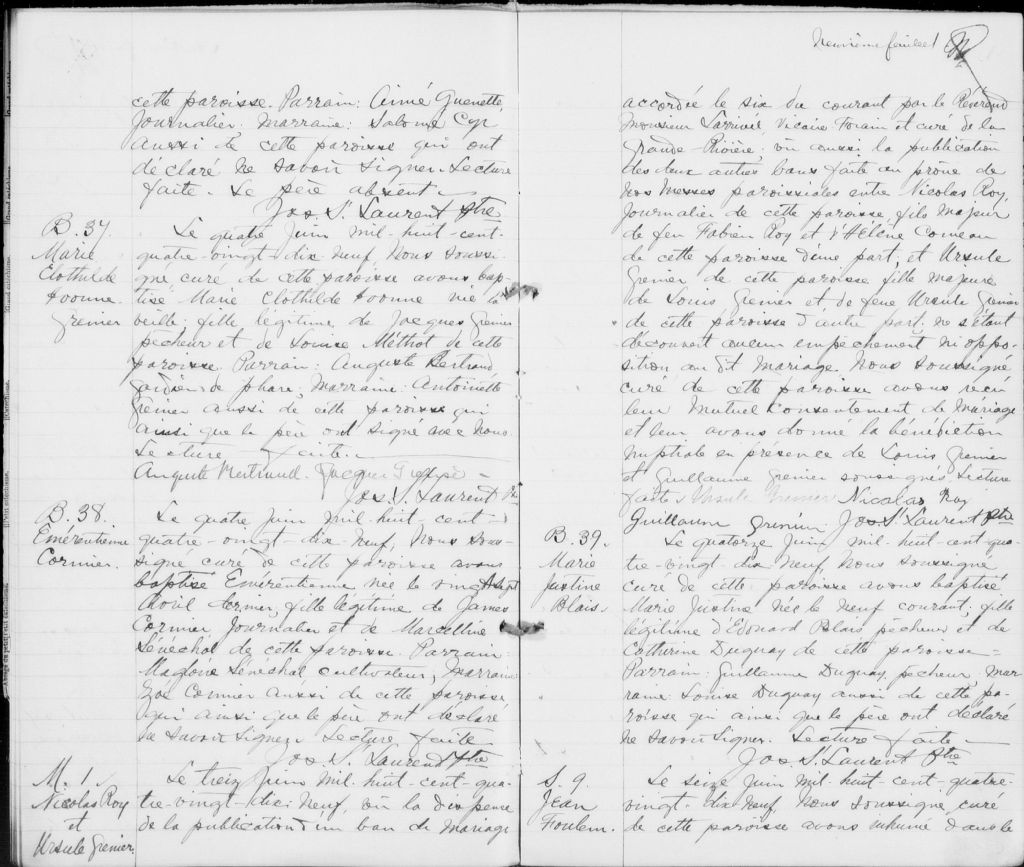 cette paroisse. Parrain: Aimé Guenette,
Journalier. Marraine: Salomé Cyr
aussi de cette paroisse qui ont
déclaré ne savoir signer. Lecture
faite. Le père absent.
Jos. St Laurent Ptre
B. 37.
Marie
Clothilde
Ivonne
Grenier
Le quatre Juin mil-huit-cent-
quatre-vingt-dix neuf, Nous soussi-
gné curé de cette paroisse avons bap-
tisé Marie Clothilde Ivonne née la
veille, fille légitime de Jacques Grenier
pêcheur et de Louise Méthot de cette
paroisse. Parrain: Auguste Bertrand,
gardien de phare; Marraine: Antoinette
Grenier aussi de cette paroisse qui
ainsi que le père ont signé avec Nous.
Lecture faite.
Auguste Bertrand. Jacques
Jos. S. Laurent Ptre
B. 38.
Emérentienne
Cormier.
Le quatre Juin mil-huit-cent-
quatre-vingt-dix-neuf, Nous sous-
signé curé de cette paroisse avons
baptisé Emérentienne née le vingt sept
Avril dernier, fille légitime de James
Cormier Journalier et de Marcelline
Sénéchal de cette paroisse. Parrain:
Magloire Sénéchal cultivateur, Marraine
Zoé Cormier aussi de cette paroisse
qui ainsi que le père ont déclaré
ne savoir signer. Lecture faite
Jos. S. Laurent Ptre
M. 1.
Nicolas Roy
et
Ursule Grenier.
Le treize Juin mil-huit-cent-qua-
tre-vingt-dix-neuf, vu la dispense
de la publication d'un ban de mariage
Neuvième feuillet
accordée le six du courant par le Révérend
Monsieur Larrivée, Vicaire Forain et curé de la
Grande-Rivière; vu aussi la publication
des deux autres bans faite au prône de
nos Messes paroissiales entre Nicolas Roy,
Journalier de cette paroisse, fils majeur
de feu Fabien Roy et d'Hélène Comeau
de cette paroisse d'une part; et Ursule
Grenier de cette paroisse fille majeure
de Louis Grenier et de feue Ursule Grenier
de cette paroisse d'autre part; ne s'étant
découvert aucun empêchement ni oppo-
sition au dit mariage. Nous soussigné
curé de cette paroisse avons reçu
leur mutuel consentement de mariage
et leur avons donné la bénédiction
nuptiale en présence de Louis Grenier
et Guillaume Grenier soussignés. Lecture
faite. Ursule Grenier Nicolas Roy
Guillaume Grenier Jos. St Laurent Ptre
B. 39.
Marie
Justine
Blais.
Le quatorze Juin mil-huit-cent-qua-
tre-vingt-dix neuf, Nous soussigné
curé de cette paroisse avons baptisé
Marie Justine née le neuf courant; fille
légitime d'Edouard Blais pêcheur et de
Catherine Duguay de cette paroisse.
Parrain: Guillaume Duguay, pêcheur, Mar-
raine: Louise Duguay aussi de cette pa-
roisse qui ainsi que le père ont déclaré
ne savoir signer. Lecture faite.
Jos. St Laurent Ptre
S. 9.
Jean
Foulem.
Le seize Juin mil-huit-cent-quatre-
vingt-dix neuf, Nous soussigné curé
de cette paroisse avons inhumé dans le